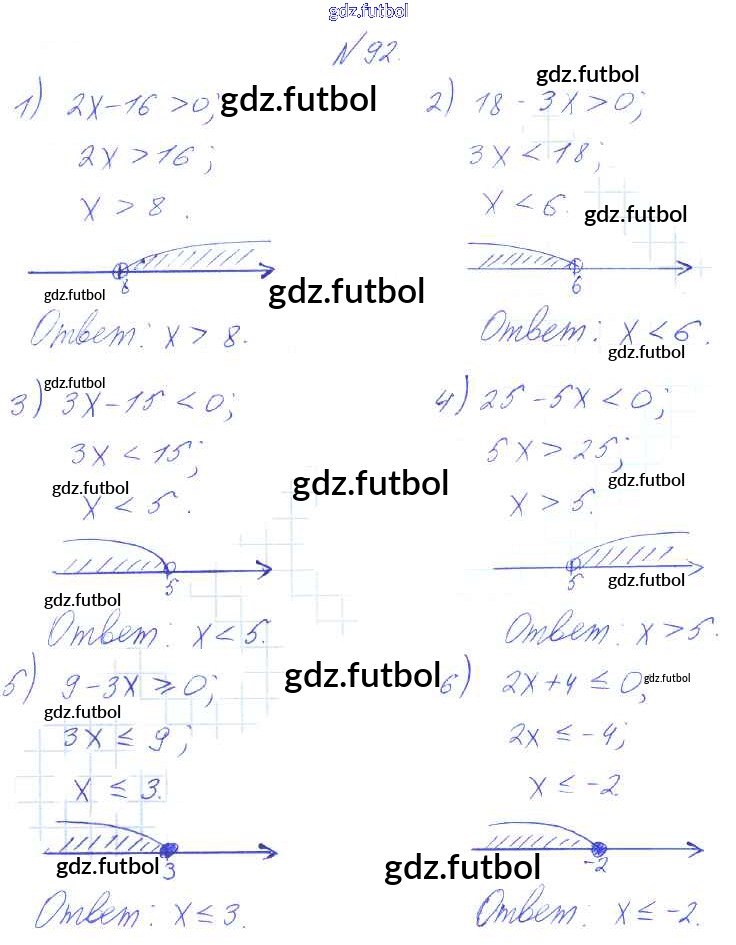 gdz.futbol
N 92.
1) 2x-16 >0; gdz.futbol
2x >16;
x > 8.
8
gdz.futbol
gdz.futbol
Ответ: x > 8.
gdz.futbol
2) 18 - 3x > 0;
3x < 18;
x < 6.
gdz.futbol
6
Ответ: x < 6.
gdz.futbol
gdz.futbol
3) 3x-15 < 0;
3x < 15;
gdz.futbol
x < 5.
gdz.futbol
5
gdz.futbol
Ответ: x < 5.
4) 25 -5x < 0;
5x > 25;
gdz.futbol
x > 5.
5
gdz.futbol
Ответ: x > 5.
gdz.futbol
5) 9-3x ≥ 0;
gdz.futbol
3x ≤ 9;
x ≤ 3.
gdz.futbol
3
Ответ: x ≤ 3.
6) 2x+4 ≤ 0;
gdz.futbol
2x ≤ -4;
x ≤ -2.
-2
gdz.futbol
Ответ: x ≤ -2.